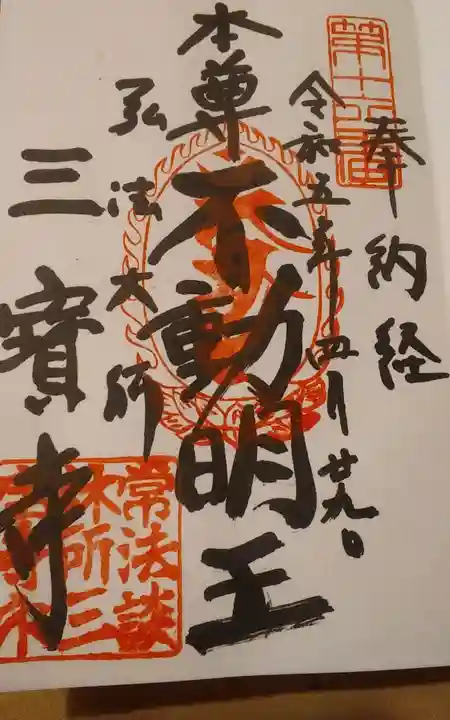 奉納経
令和五年四月廿九日
本尊不動明王
弘法大師
三寳寺
常法談
林所三